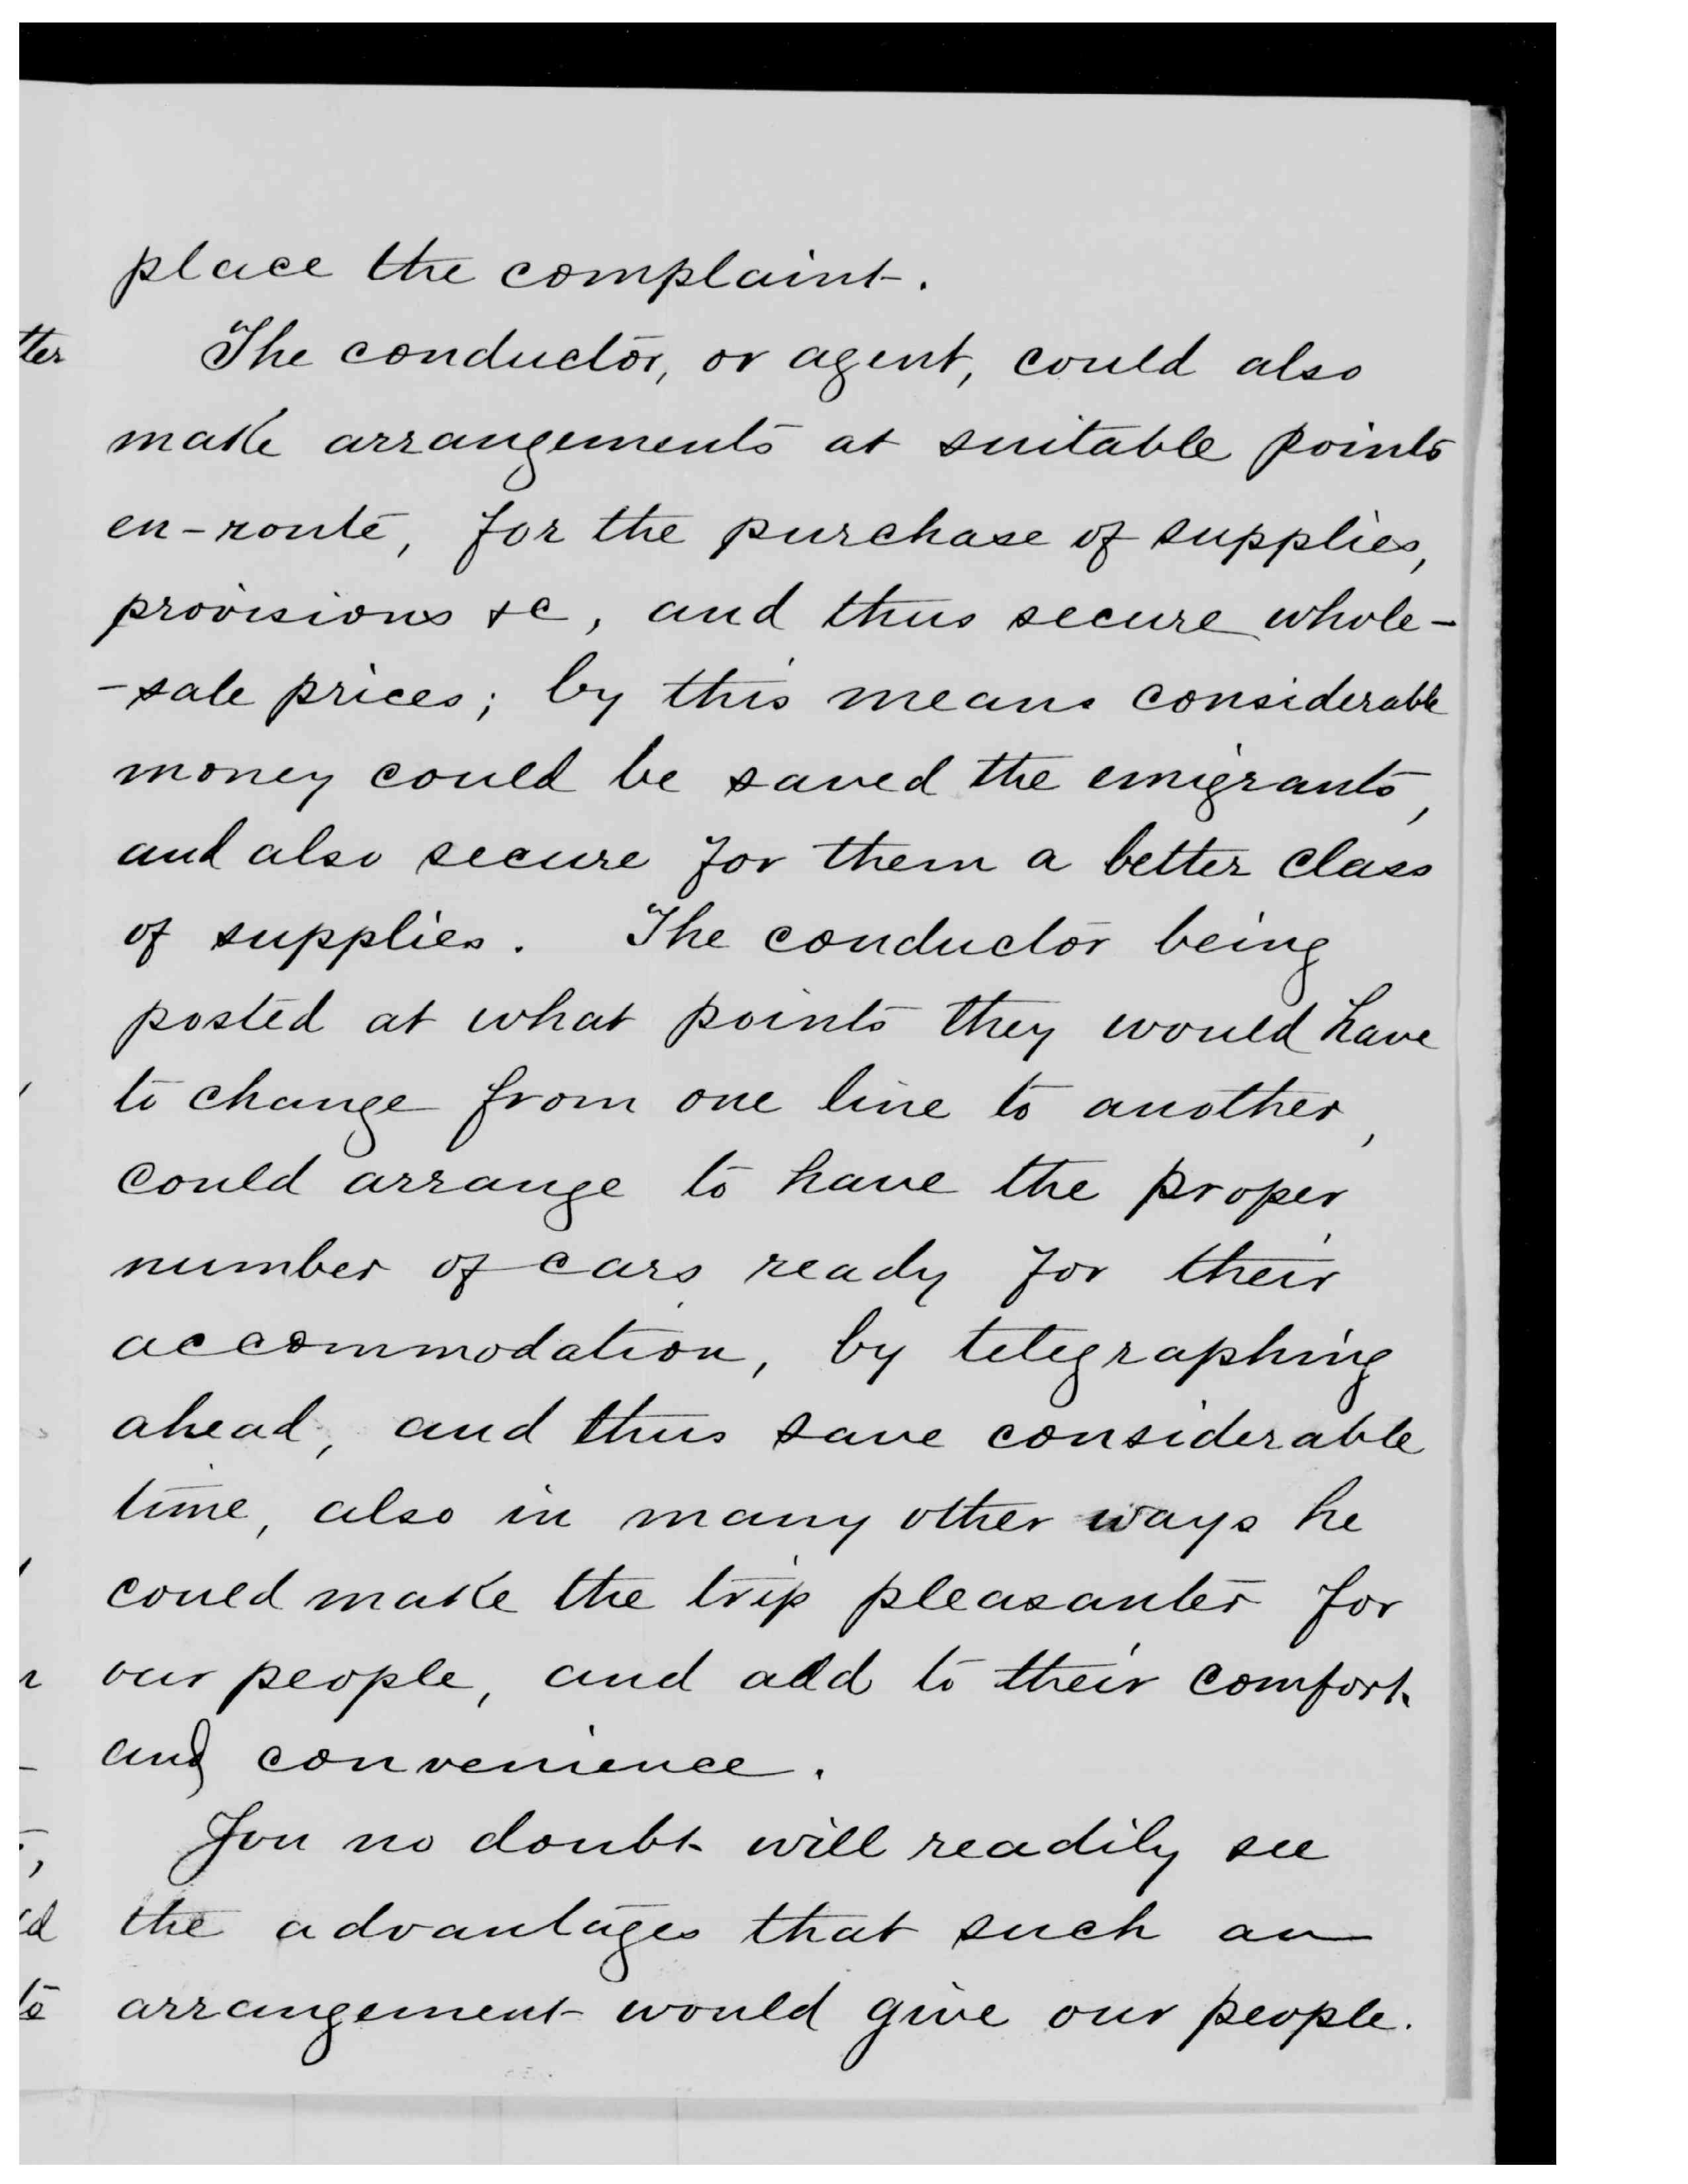 place the complaint.
The conductor, or agent, could also
make arrangements at suitable points
en-route, for the purchase of supplies,
provisions &c, and thus secure whole-
-sale prices; by this means considerable
money could be saved the emigrants,
and also secure for them a better class
of supplies. The conductor being
posted at what points they would have
to change from one line to another,
could arrange to have the proper
number of cars ready for their
accommodation, by telegraphing
ahead, and thus save considerable
time, also in many other ways he
could make the trip pleasanter for
our people, and add to their comfort
and convenience.
You no doubt will readily see
the advantages that such an
arrangement would give our people.